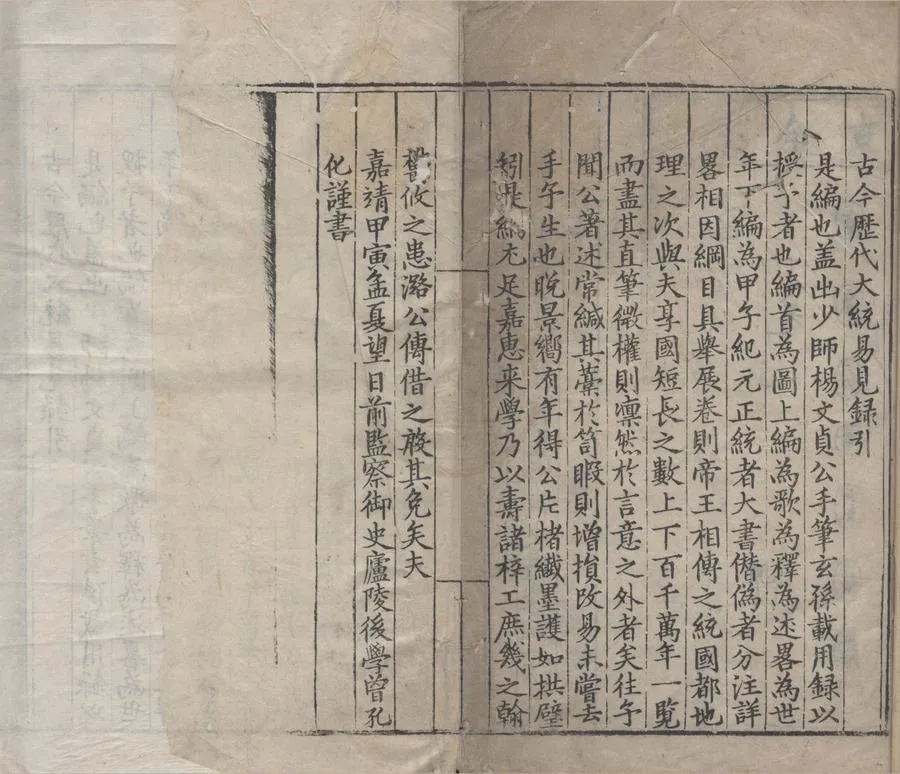 古今歷代大統易見録引
是編也盖出少師楊文貞公手筆玄孫載用録以
授予者也編首為圖上編為歌為釋為述畧為世
年下編為甲子紀元正統者大書僣偽者分注詳
畧相因綱目具舉展卷則帝王相傳之統國都地
理之次與夫享國短長之數上下百千萬年一覧
而盡其直筆微權則凛然於言意之外者矣往予
聞公著述常緘其藁於笥暇則增損改易未嘗去
手予生也晚景嚮有年得公片楮纎墨護如拱璧
矧是編尤足嘉惠来學乃以壽諸梓工庶幾之翰
攸之恚潞公傳借之殽其免矣夫
嘉靖甲寅孟夏望日前監察御史廬陵後學曾孔
化謹書